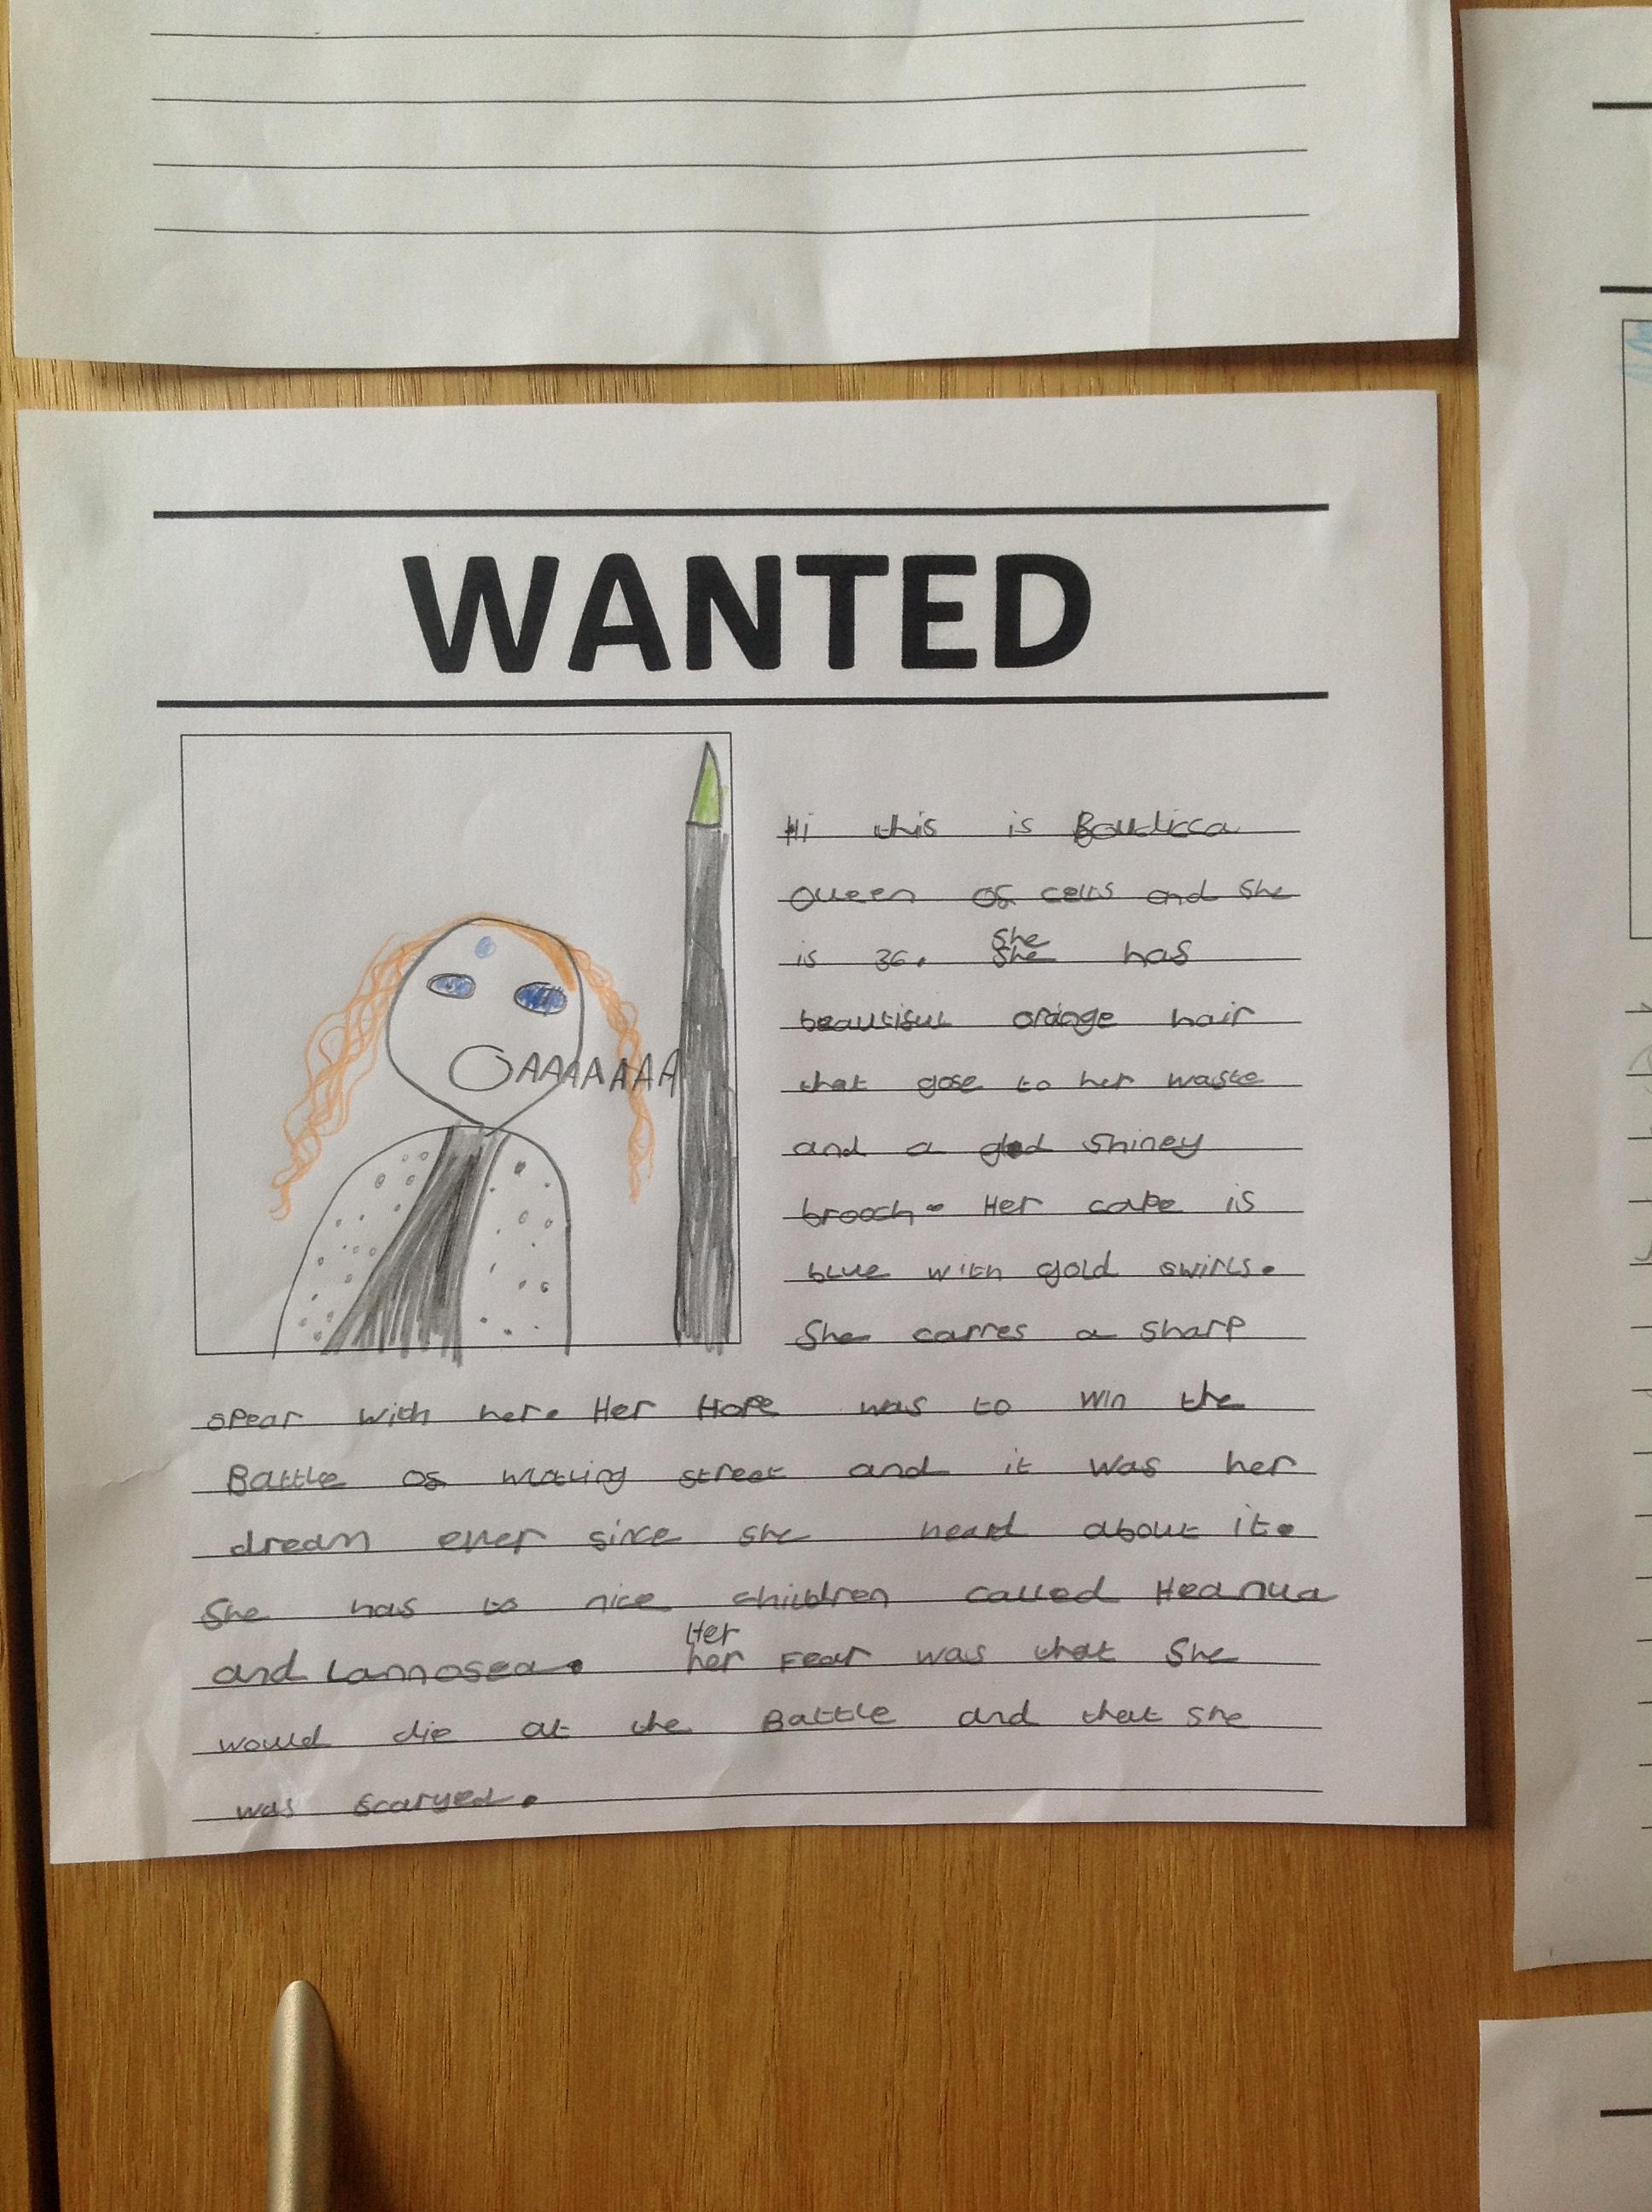 WANTED
OAAAAAAA
Hi this is Boudicca
Queen of celts and she
is 36. she
she has
beautiful orange hair
that gose to her waste
and a gold shiney
brooch. Her cape is
blue with gold swirls.
She carres a sharp
spear with her. Her Hope was to win the
Battle of wating street and it was her
dream ever since she heard about it.
She has to nice children called Heanua
and Lannosea. Her
her Fear was that she
would die at the Battle and that she
was scaryed.